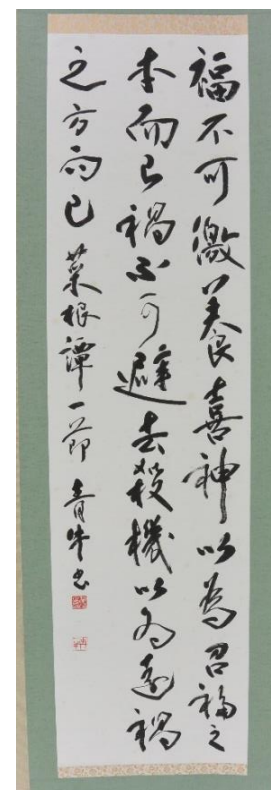 福不可徼養喜神以為召福之
本而已禍不可避去殺機以為遠禍
之方而已 菜根譚一節 青牛書